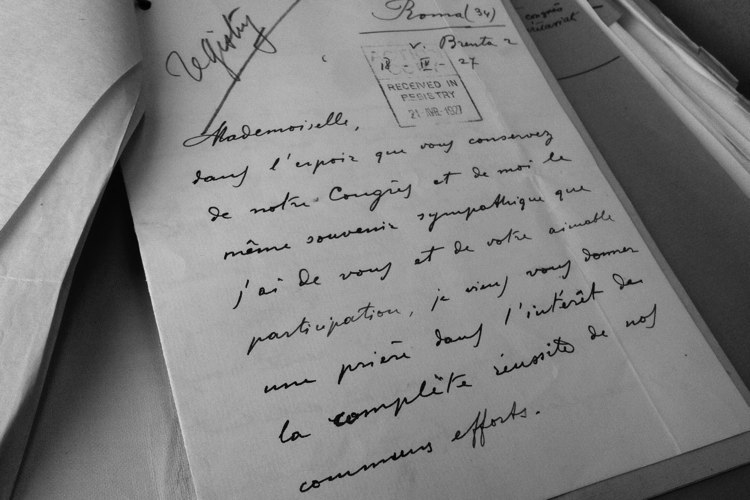 Registry
Roma (34)
v. Brenta 2
18 - IV - 27
RECEIVED IN
REGISTRY
21 AVR. 1927
Mademoiselle,
dans l'espoir que vous conservez
de notre Congrès et de moi le
même souvenir sympathique que
j'ai de vous et de votre aimable
participation, je viens vous donner
une prière dans l'intérêt de
la complète réussite de nos
communs efforts.
congrès